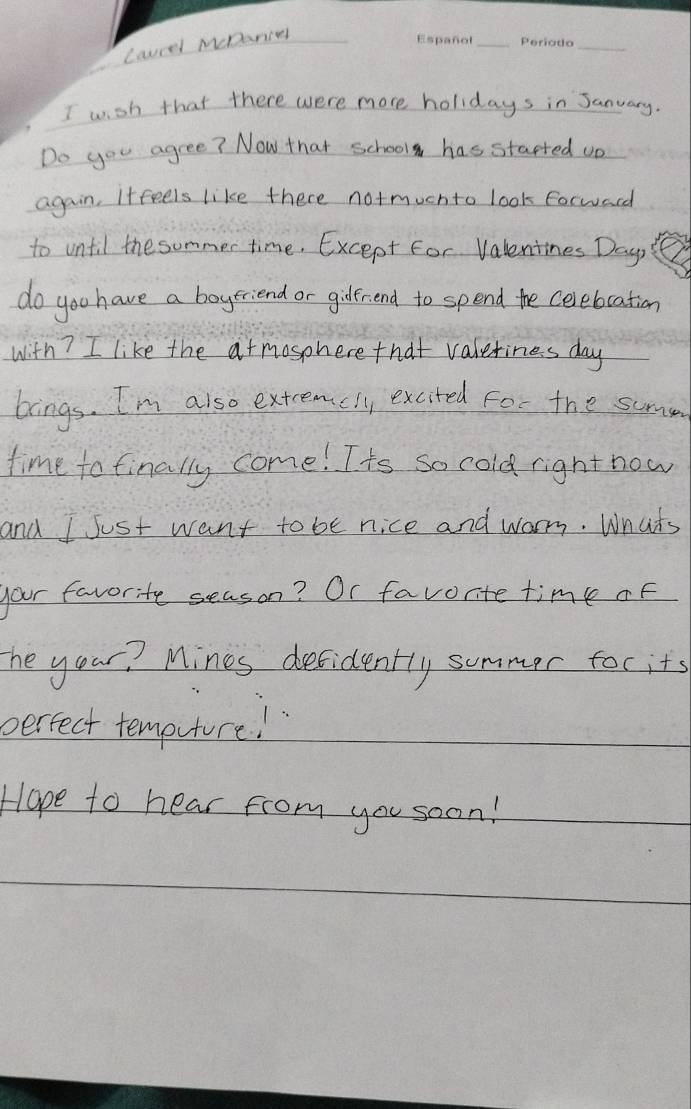 Laurel McDaniel Español ____ Periodo ____
I wish that there were more holidays in January.
Do you agree? Now that school has started up
again, it feels like there not much to look forward
to until the summer time. Except for Valentines Day,
do you have a boyfriend or gidfriend to spend the celebration
with? I like the atmosphere that valetines day
brings. Im also extremely excited for the summer
time to finally come! Its so cold right now
and I just want to be nice and warm. Whats
your favorite season? Or favorite time of
the year? Mines defidently summer for its
perfect temputure!
Hope to hear from you soon!